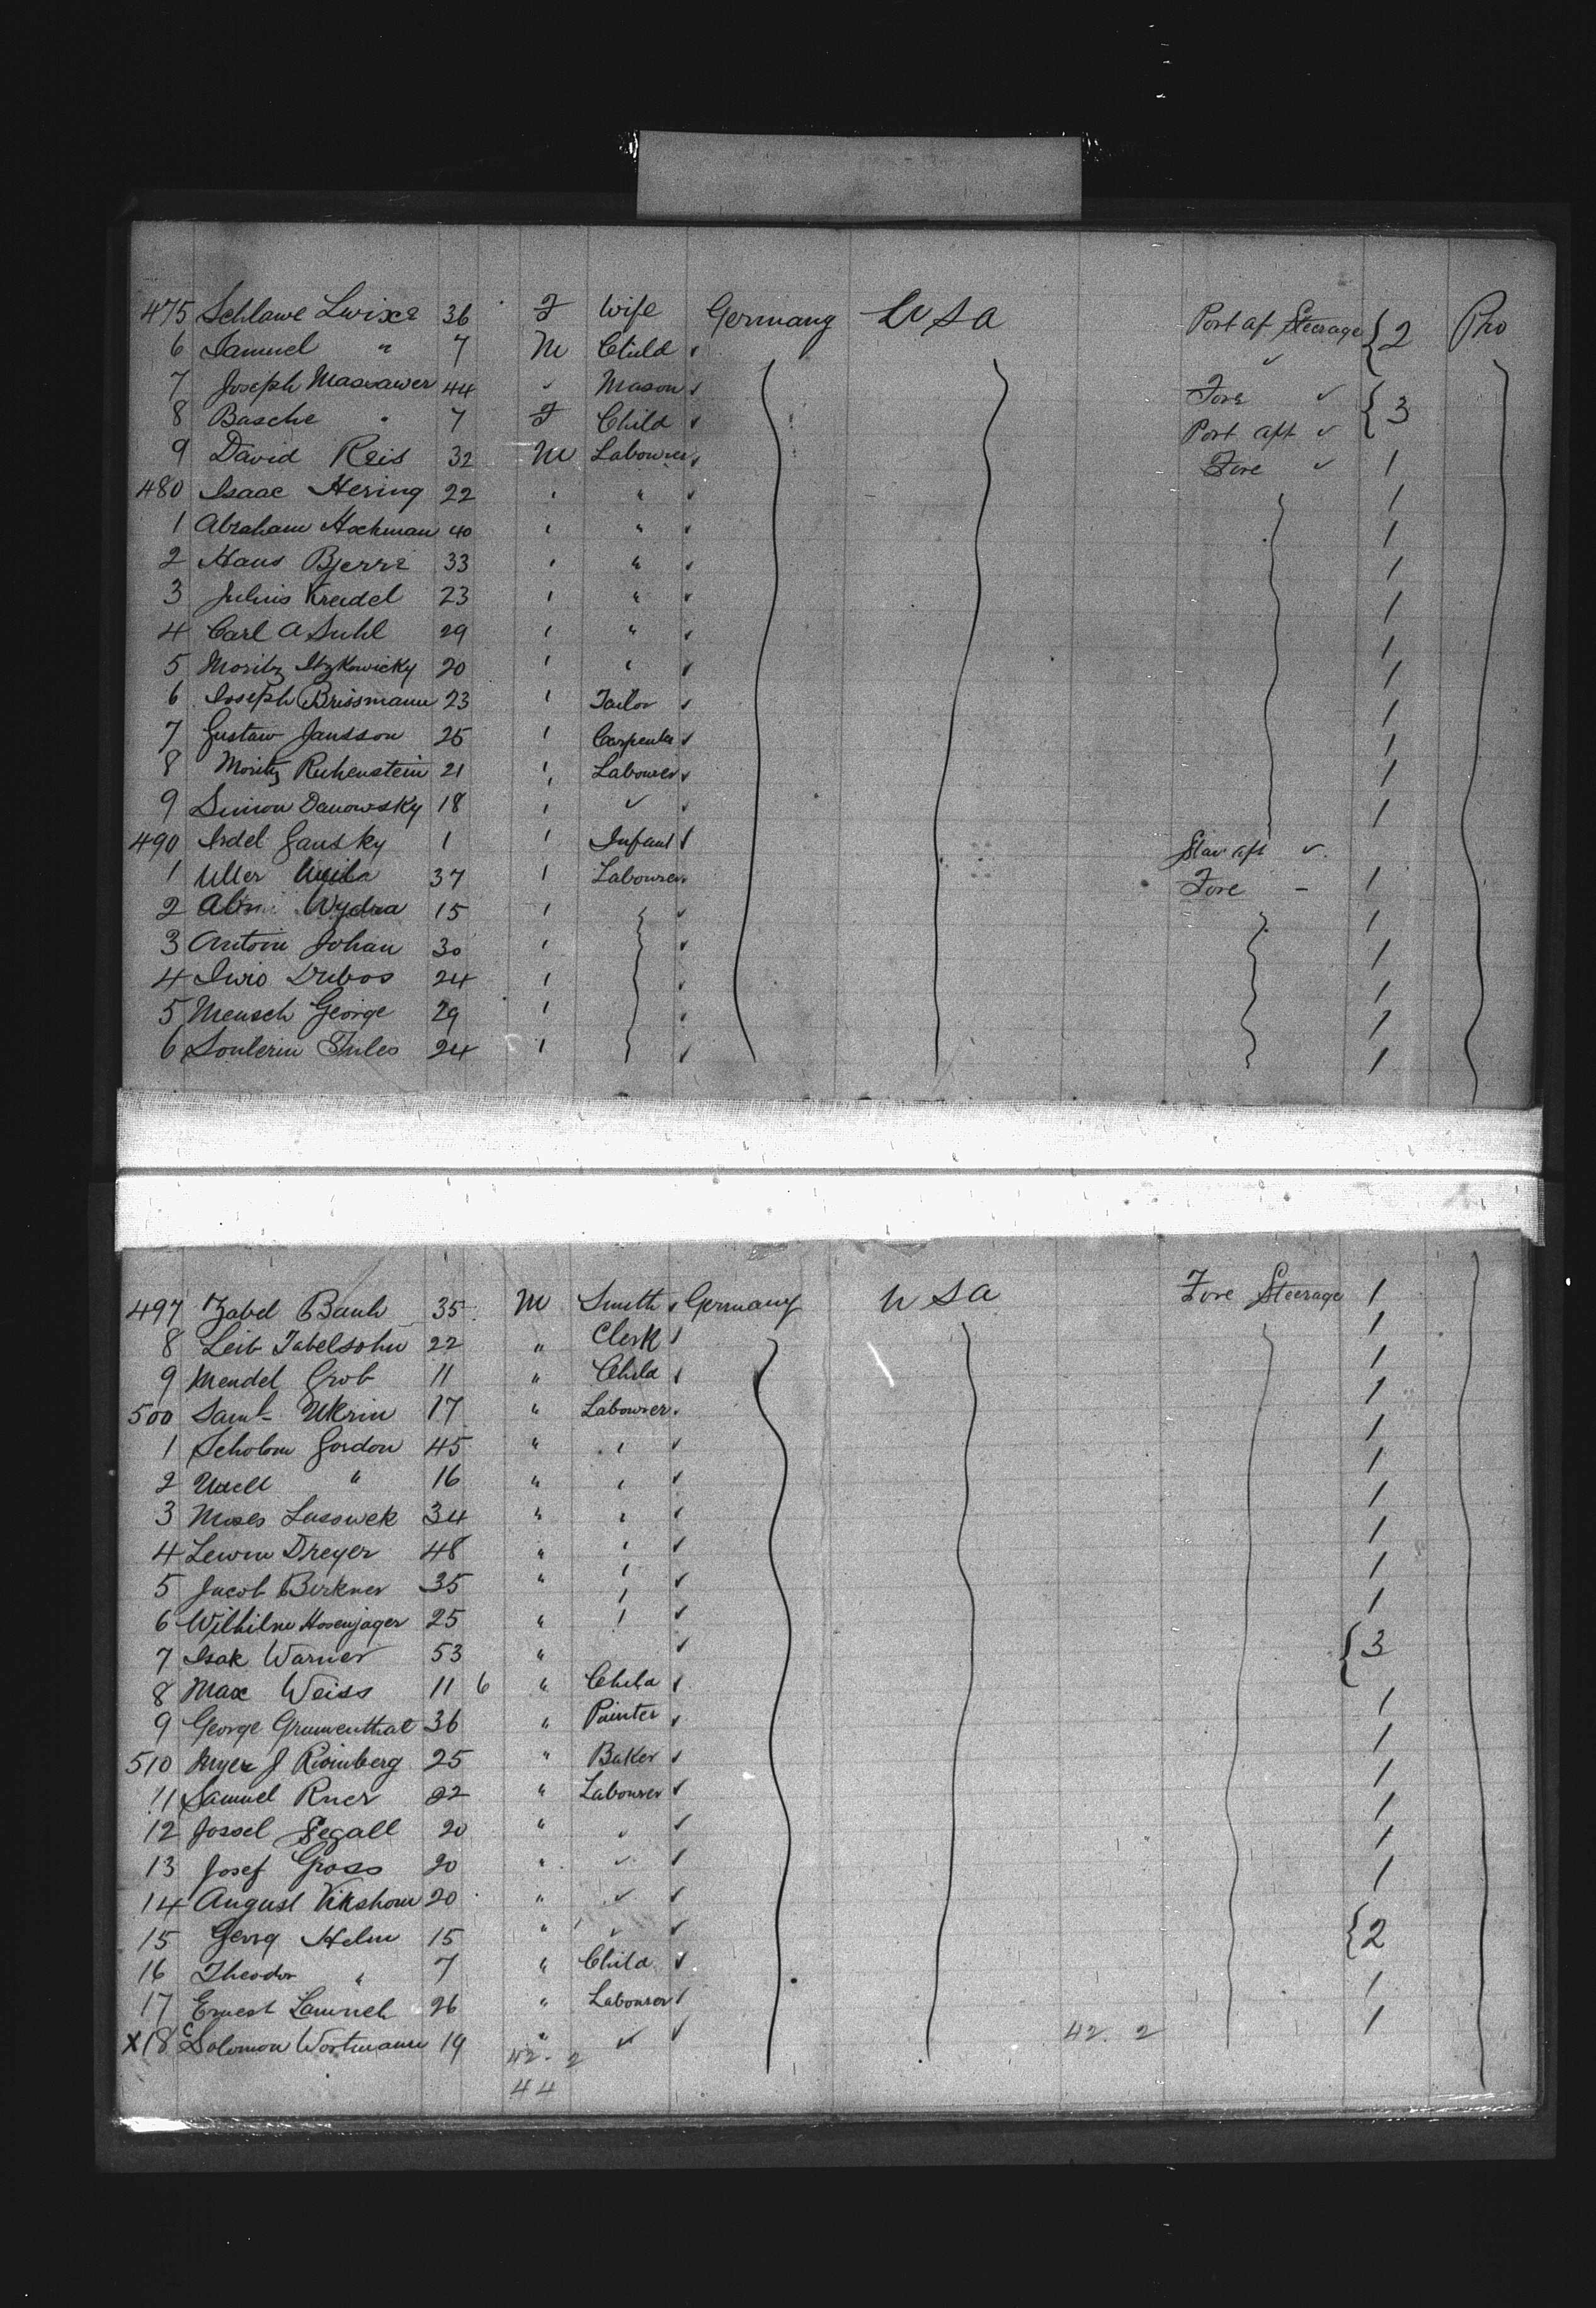 475 Schlawe 36 F Wife Germany U S A Port af Steerage { 2 Pro
6 Samuel " 7 M Child ✓ ✓
7 Joseph 44 ✓ Mason ✓ Fore ✓ { 3
8 Basche " 7 F Child ✓ Port aft ✓
9 David Reis 32 M Labourer ✓ Fore ✓ 1
480 Isaac Hering 22 " " ✓ 1
1 Abraham Hochman 40 " " ✓ 1
2 Hans Bjerre 33 " " ✓ 1
3 Julius Kreidel 23 " " ✓ 1
4 Carl A Suhl 29 " " ✓ 1
5 Moritz Itzkowicky 20 " " ✓ 1
6 Joseph Brissmann 23 " Tailor ✓ 1
7 Gustaw Jansson 25 " Carpenter ✓ 1
8 Moritz Rubenstein 21 " Labourer ✓ 1
9 Simon Danowsky 18 " ✓ ✓ 1
490 Gansky 1 " Infant ✓ Star aft ✓
1 37 " Labourer Fore - 1
2 Wydra 15 " ✓ 1
3 Antoin Johan 30 " ✓ 1
4 24 " 1
5 Mensch George 29 " 1
6 24 " ✓ 1
497 35 M Smith ✓ Germany U S A Fore Steerage 1
8 Leib Tabelsohn 22 " Clerk ✓ 1
9 Mendel Grob 11 " Child ✓ 1
500 Saml Ukrin 17 " Labourer 1
1 Scholom Gordon 45 " " ✓ 1
2 " 16 " " ✓ 1
3 Moses Lassowek 34 " " ✓ 1
4 Lewin Dreyer 48 " " ✓ 1
5 Jacob Birkner 35 " " ✓ 1
6 Wilhilm Hosenjager 25 " " ✓ 1
7 Isak Warner 53 " ✓ { 3
8 Max Weiss 11 6 " Child ✓
9 George Grumenthal 36 " Painter ✓ 1
510 Myer J 25 " Baker ✓ 1
11 Samuel 22 " Labourer ✓ 1
12 Jossel Segall 20 " ✓ ✓ 1
13 Josef Gross 20 " ✓ ✓ 1
14 August Vikshom 20 " ✓ ✓ 1
15 Georg Helm 15 " ✓ ✓ { 2
16 Theodor " 7 " Child ✓
17 Ernest 26 " Labourer ✓ 1
X 18 Solomon Wortmann 19 " ✓ ✓ 42. 2 1
42. 2
44